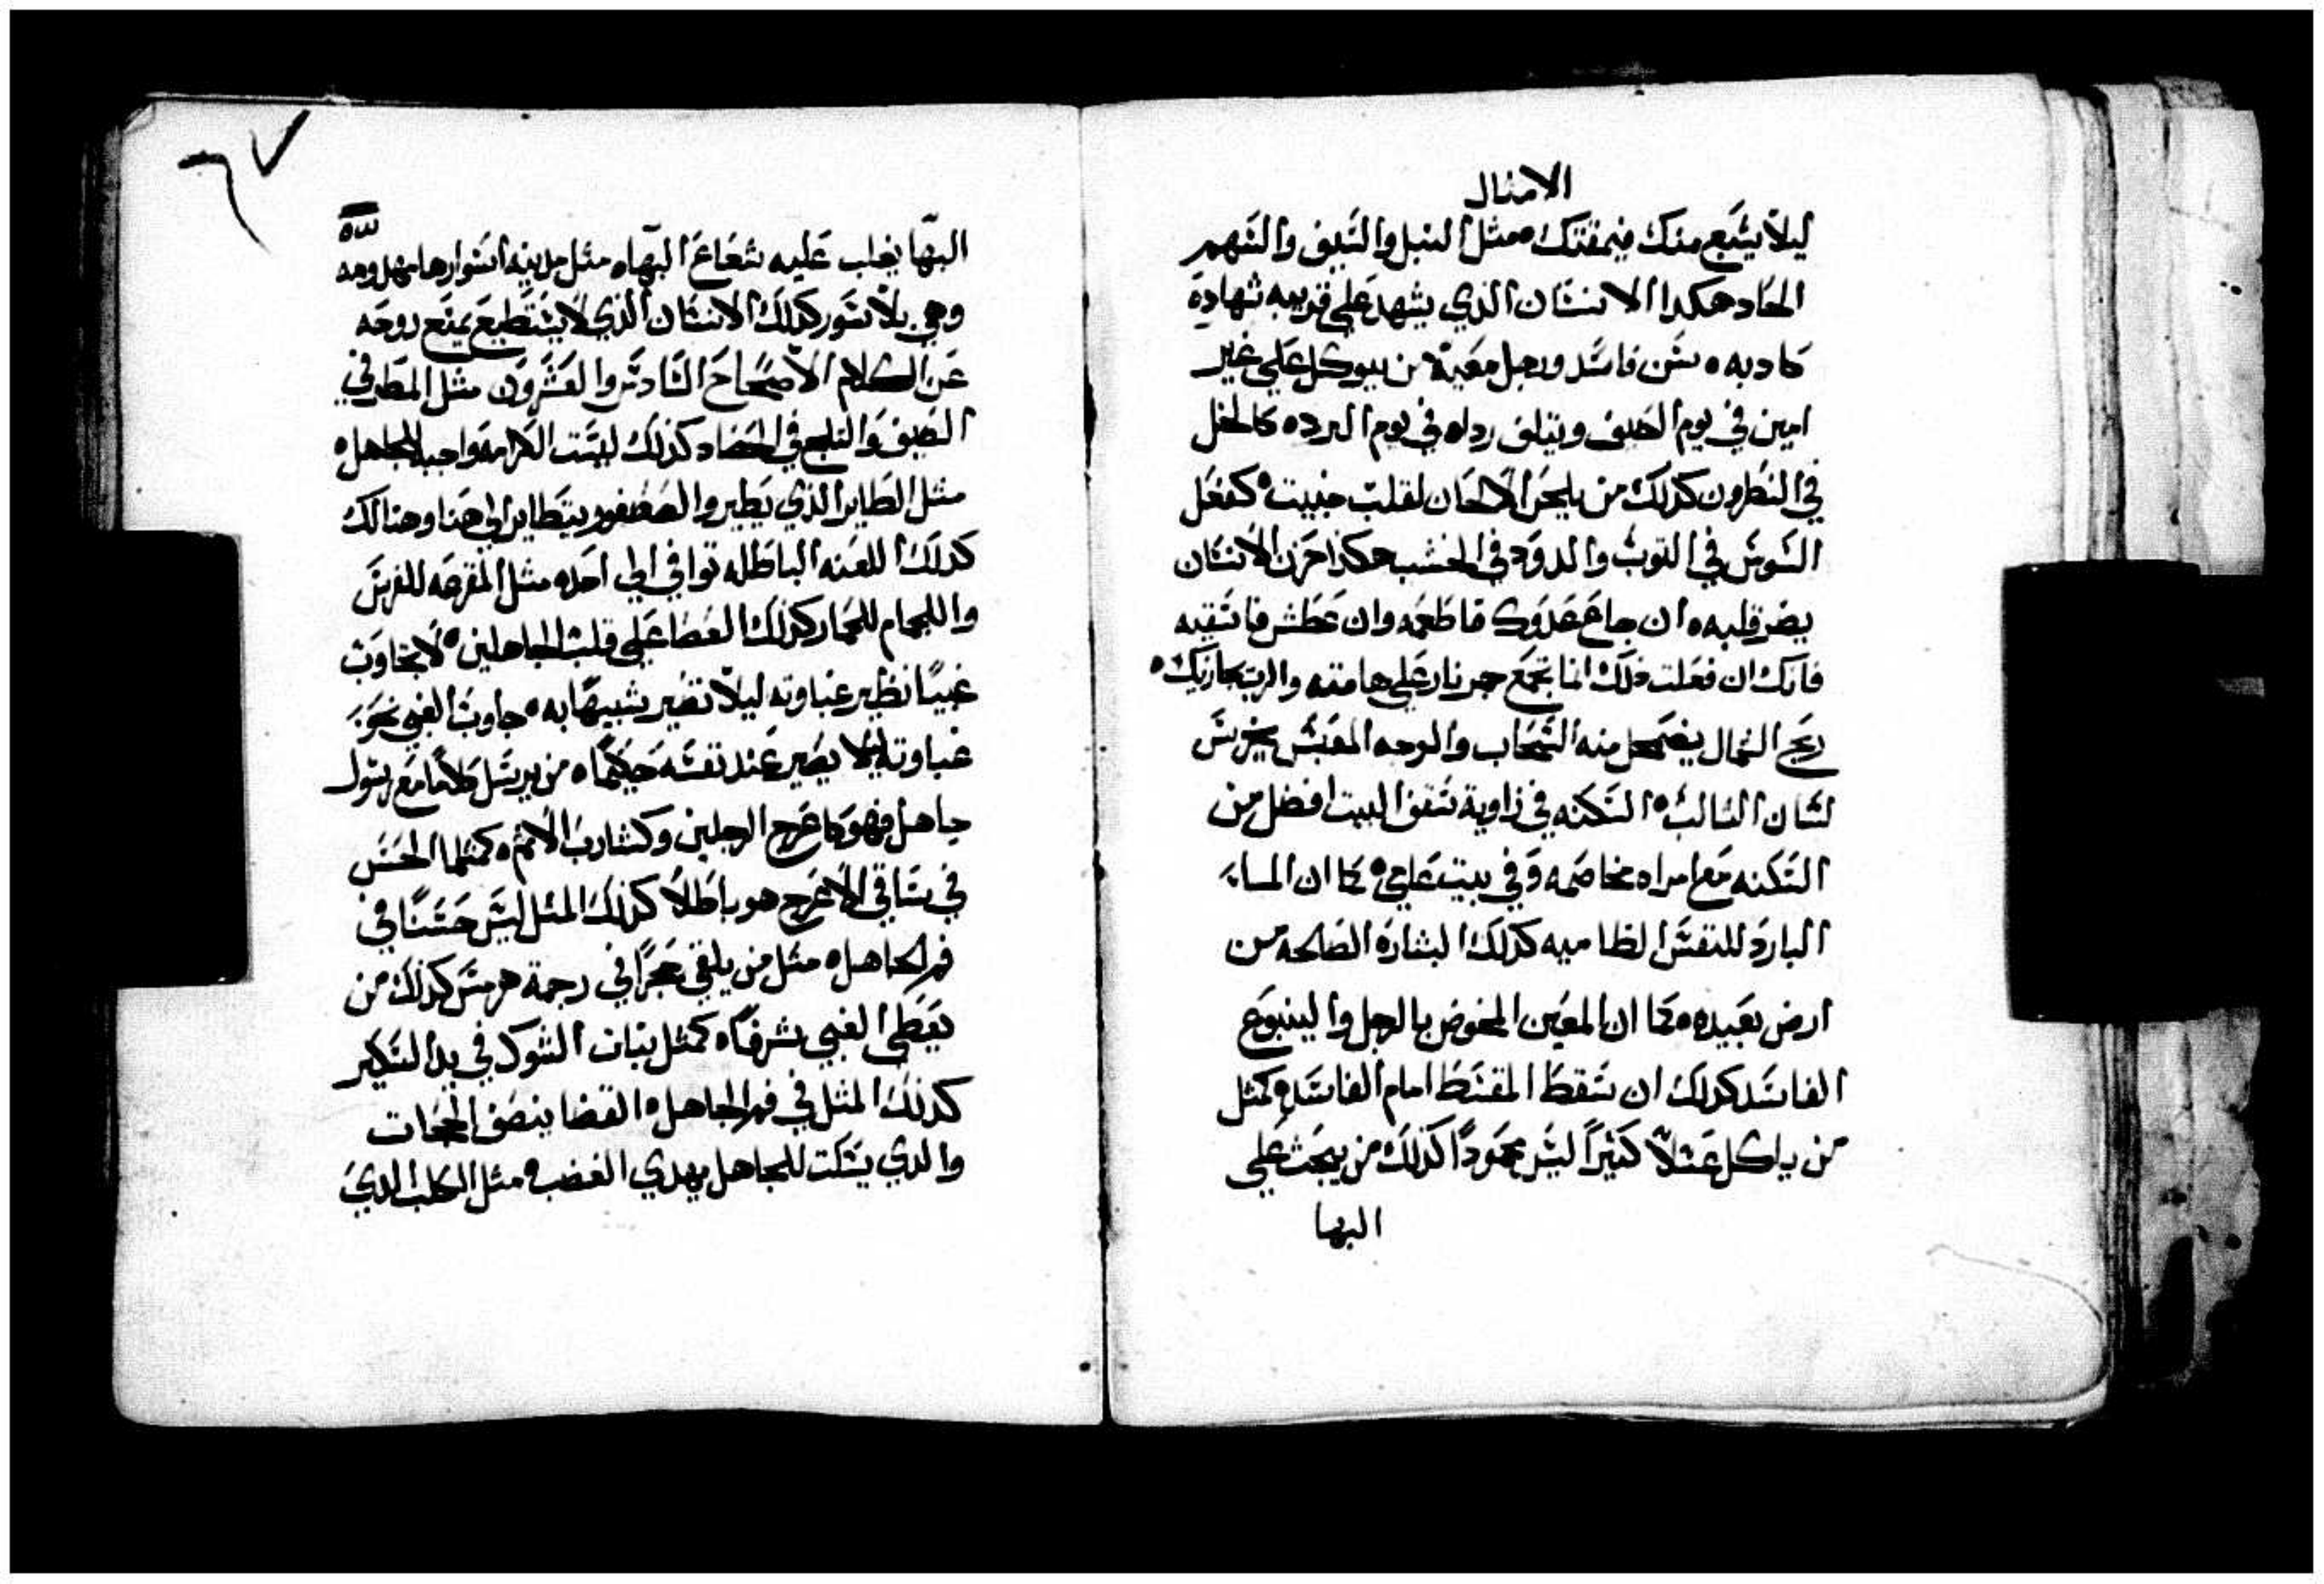 الامثال
ليلا يشبع منك فيمقتك ه مثل النبل والسيف والسهم
الحاد هكدا الانسان الذي يشهد علي قريبه شهادة
كادبه ه سن فاسد ورجل معيبة من يوكل علي غير
امين في يوم الضيق ويتلف رداه في يوم البرد ه كالخل
في النطرون كذلك من يلحن الالحان لقلب خبيث ه كفعل
السوس في التوب والدود في الخشب هكذا حزن الانسان
يضر قلبه ه ان جاع عدوك فاطعمه وان عطش فاسقيه
فانك ان فعلت ذلك انما تجمع جمر نار علي هامته والرب يجازيك ه
ريح الشمال يضمحل منه السحاب والوجه المعبس يخرس
لسان الثالب ه السكنه في زاوية سقف البيت افضل من
السكنه مع امراه مخاصمه وفي بيت عامي ه كما ان الماء
البارد للنفس الظاميه كذلك البشارة الصالحه من
ارض بعيده ه كما ان المعين المخوض بالرجل والينبوع
الفاسد كذلك ان سقط المقسط امام الفاسد ه كمثل
من ياكل عسلا كثيرا ليس محمودا كذلك من يبحث علي
البها
٦٧
البها يغلب عليه شعاع البها ه مثل مدينه اسوارها مهدومه
وهي بلا سور كذلك الانسان الذي لا يستطيع يمنع روحه
عن الكلام الاصحاح السادس والعشرون مثل المطر في
الصيف والثلج في الحصاد كذلك ليست الكرامه واجبه للجاهل ه
مثل الطاير الذي يطير والعصفور يتطاير الي هنا وهنالك
كذلك اللعنه الباطله توافي الي احد ه مثل المقرعه للفرس
واللجام للحمار كذلك العصا علي قلب الجاهلين ه لا تجاوب
غبيا نظير غباوته ليلا تصير شبيها به ه جاوب الغبي نحو
غباوته ليلا يصير عند نفسه حكيما ه من يرسل كلاما مع رسول
جاهل فهو كاعرج الرجلين وكشارب الاثم ه كمثلما الحسن
في ساقي الاعرج هو باطلا كذلك المثل ليس حسنا في
فم الجاهل ه مثل من يلقي حجرا في رجمة هرمس كذلك من
يعطي الغبي شرفا ه كمثل نبات الشوك في يد السكير
كذلك المثل في فم الجاهل ه القضا ينصف الحجات
والدي يسكت للجاهل يهدي الغضب ه مثل الكلب الدي